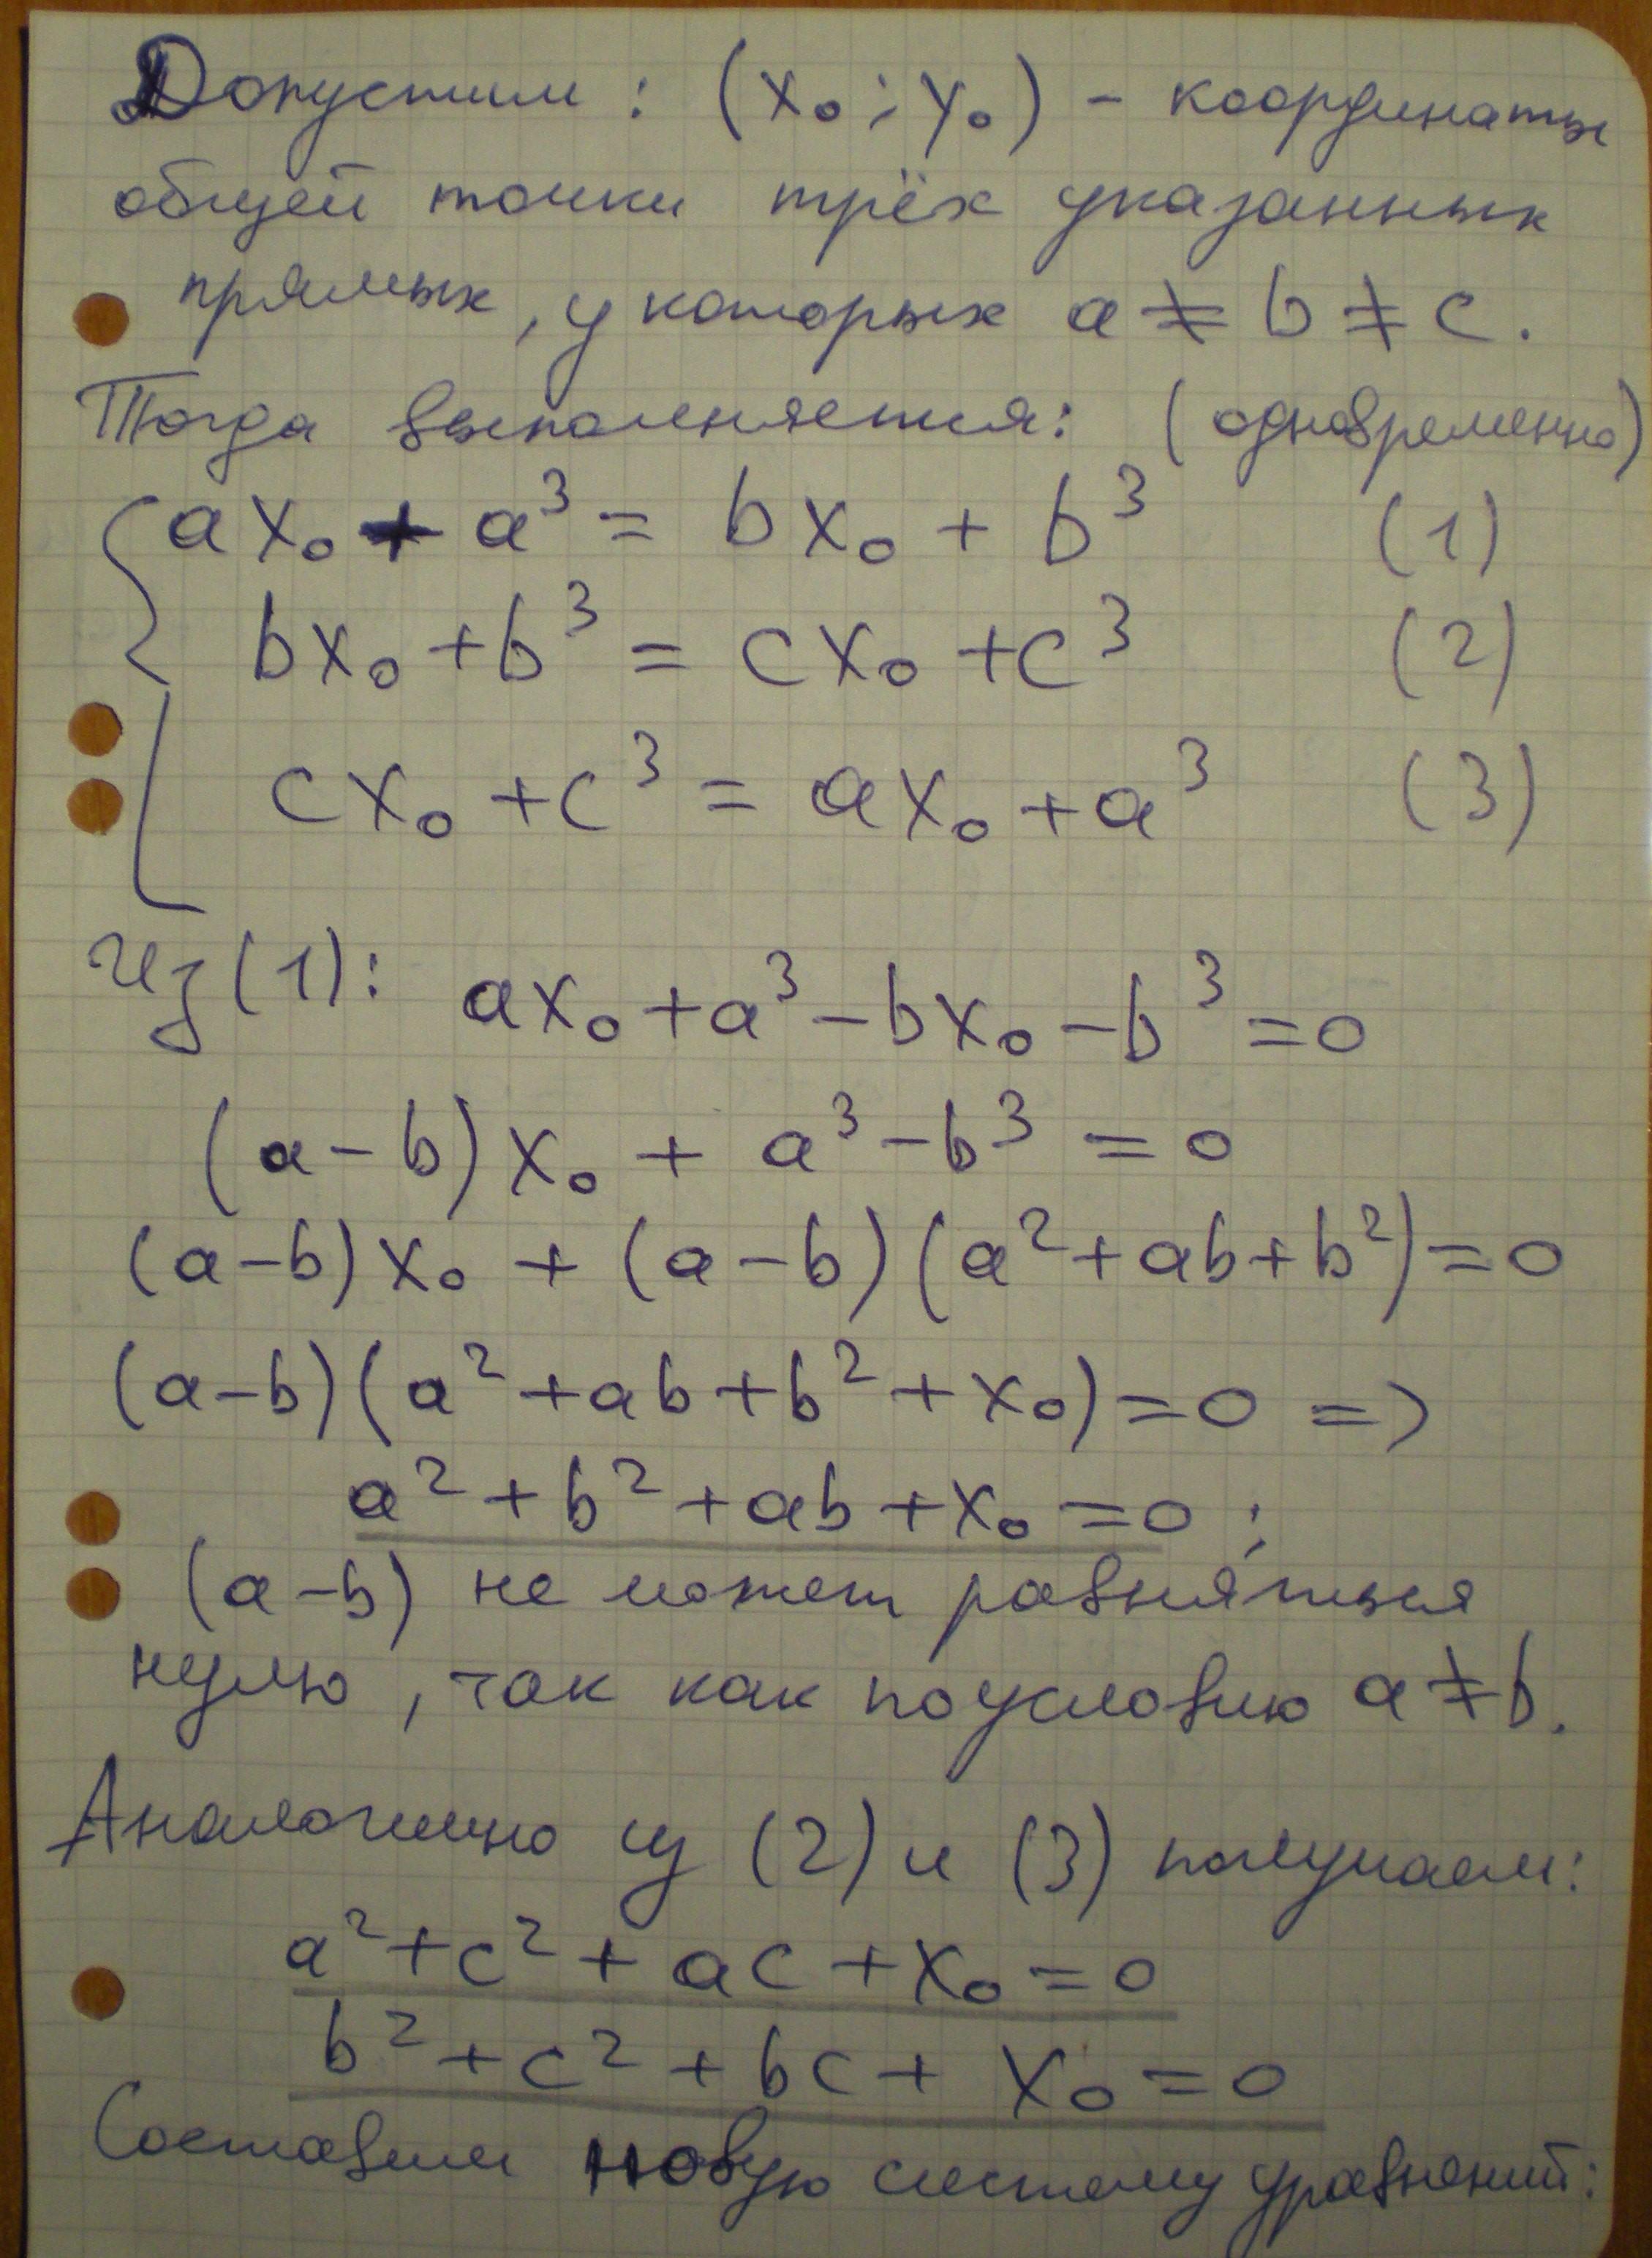 Допустим: (x₀; y₀) - координаты
общей точки трёх указанных
прямых, у которых a ≠ b ≠ c.
Тогда выполняется: (одновременно)
ax₀ + a³ = bx₀ + b³ (1)
bx₀ + b³ = cx₀ + c³ (2)
cx₀ + c³ = ax₀ + a³ (3)
Из (1): ax₀ + a³ - bx₀ - b³ = 0
(a - b)x₀ + a³ - b³ = 0
(a - b)x₀ + (a - b)(a² + ab + b²) = 0
(a - b)(a² + ab + b² + x₀) = 0 =>
a² + b² + ab + x₀ = 0;
(a - b) не может равняться
нулю, так как по условию a ≠ b.
Аналогично из (2) и (3) получаем:
a² + c² + ac + x₀ = 0
b² + c² + bc + x₀ = 0
Составим новую систему уравнений: